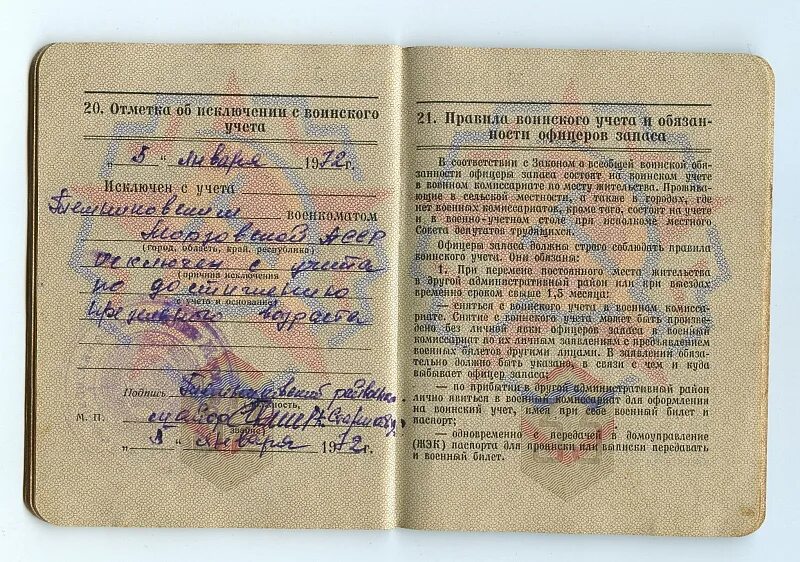 20. Отметка об исключении с воинского
учета
„ 5 " января 1972 г.
Исключен с учета
Темниковским военкоматом
Мордовской АССР
(город, область, край, республика)
исключен с учета
(причина исключения
по достижению
с учета и основание)
предельного возраста
Подпись
майор
звание)
М. П.
„ 5 " января 1972 г.
21. Правила воинского учета и обязан-
ности офицеров запаса
В соответствии с Законом о всеобщей воинской обя-
занности офицеры запаса состоят на воинском учете
в военном комиссариате по месту жительства. Прожива-
ющие в сельской местности, а также в городах, где
нет военных комиссариатов, кроме того, состоят на учете
и в военно-учетном столе при исполкоме местного
Совета депутатов трудящихся.
Офицеры запаса должны строго соблюдать правила
воинского учета. Они обязаны:
1. При перемене постоянного места жительства
в другой административный район или при выездах
временно сроком свыше 1,5 месяца:
— сняться с воинского учета в военном комисса-
риате. Снятие с воинского учета может быть произве-
дено без личной явки офицеров запаса в военный
комиссариат по их личным заявлениям с предъявлением
военных билетов другими лицами. В заявлении обяза-
тельно должно быть указано, в связи с чем и куда
выбывает офицер запаса;
— по прибытии в другой административный район
лично явиться в военный комиссариат для оформления
на воинский учет, имея при себе военный билет и
паспорт;
— одновременно с передачей в домоуправление
(ЖЭК) паспорта для прописки или выписки передавать
и военный билет.